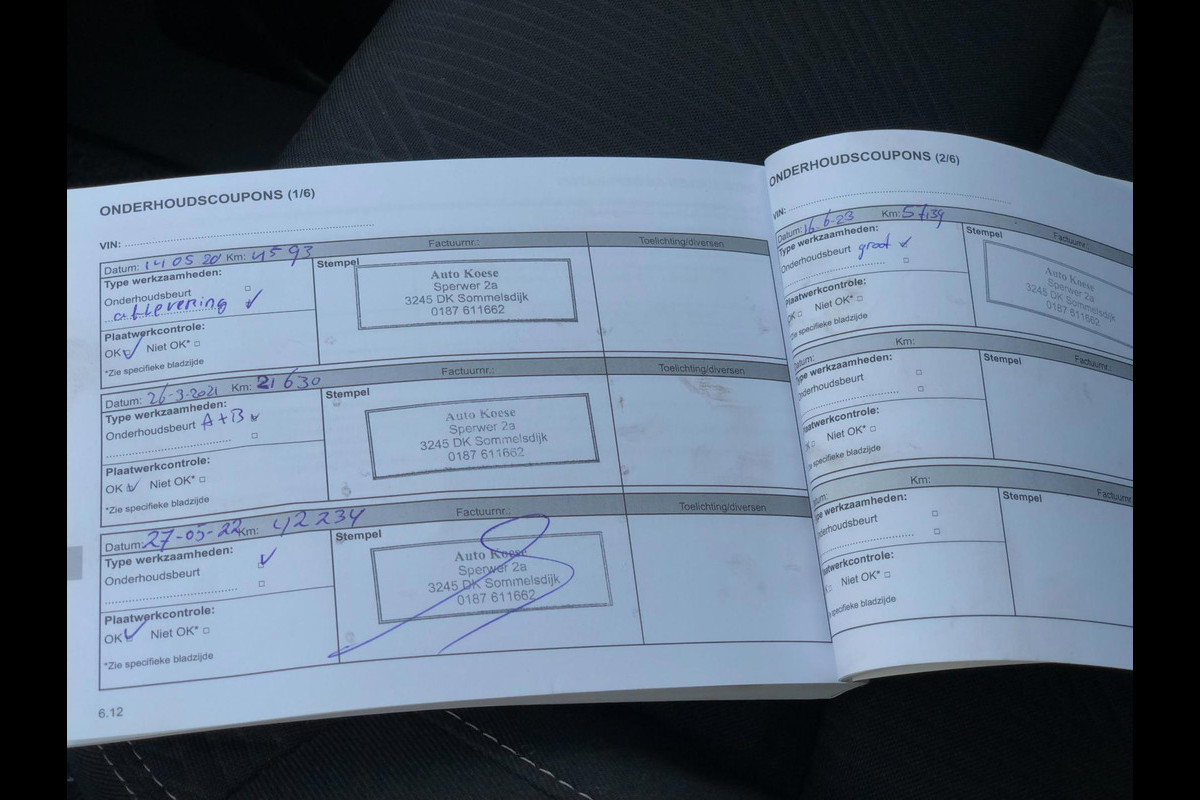 ONDERHOUDSCOUPONS (1/6)
VIN:
Datum: 14 05 20 Km: 4593 Factuurnr.: Toelichting/diversen
Type werkzaamheden:
Onderhoudsbeurt
aflevering
Plaatwerkcontrole:
OK Niet OK*
*Zie specifieke bladzijde
Stempel
Auto Koese
Sperwer 2a
3245 DK Sommelsdijk
0187 611662
Datum: 26-3-2021 Km: 21630 Factuurnr.: Toelichting/diversen
Type werkzaamheden:
Onderhoudsbeurt A+B
Plaatwerkcontrole:
OK Niet OK*
*Zie specifieke bladzijde
Stempel
Auto Koese
Sperwer 2a
3245 DK Sommelsdijk
0187 611662
Datum: 27-05-22 Km: 42234 Factuurnr.: Toelichting/diversen
Type werkzaamheden:
Onderhoudsbeurt
Plaatwerkcontrole:
OK Niet OK*
*Zie specifieke bladzijde
Stempel
Auto Koese
Sperwer 2a
3245 DK Sommelsdijk
0187 611662
6.12
ONDERHOUDSCOUPONS (2/6)
VIN:
Datum: 16-6-23 Km: Factuurnr.
Type werkzaamheden:
Onderhoudsbeurt groot
Plaatwerkcontrole:
OK Niet OK*
Zie specifieke bladzijde
Stempel
Auto Koese
Sperwer 2a
3245 DK Sommelsdijk
0187 611662
Datum: Km: Factuurnr.:
Type werkzaamheden:
Onderhoudsbeurt
aatwerkcontrole:
Niet OK*
specifieke bladzijde
Stempel
tum: Km: Factuurnr
pe werkzaamheden:
derhoudsbeurt
aatwerkcontrole:
Niet OK*
specifieke bladzijde
Stempel